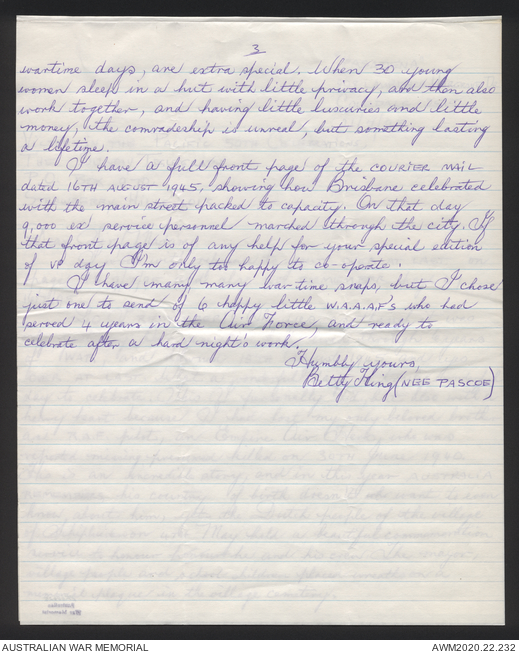 3
wartime days, are extra special. When 30 young
women sleep in a hut with little privacy, and then also
work together, and having little luxuries and little
money, the comradeship is unreal, but something lasting
a lifetime.
I have a full front page of the COURIER MAIL
dated 16TH AUGUST 1945, showing how Brisbane celebrated
with the main street packed to capacity. On that day
9,000 ex service personnel marched through the city. If
that front page is of any help for your special edition
of VP day, I'm only too happy to co-operate.
I have many, many war-time snaps, but I chose
just one to send of 6 happy little W.A.A.A.F's who had
served 4 years in the Air Force, and ready to
celebrate after a hard night's work.
Humbly yours,
Betty King (NEE PASCOE)
AUSTRALIAN WAR MEMORIAL
AWM2020.22.232